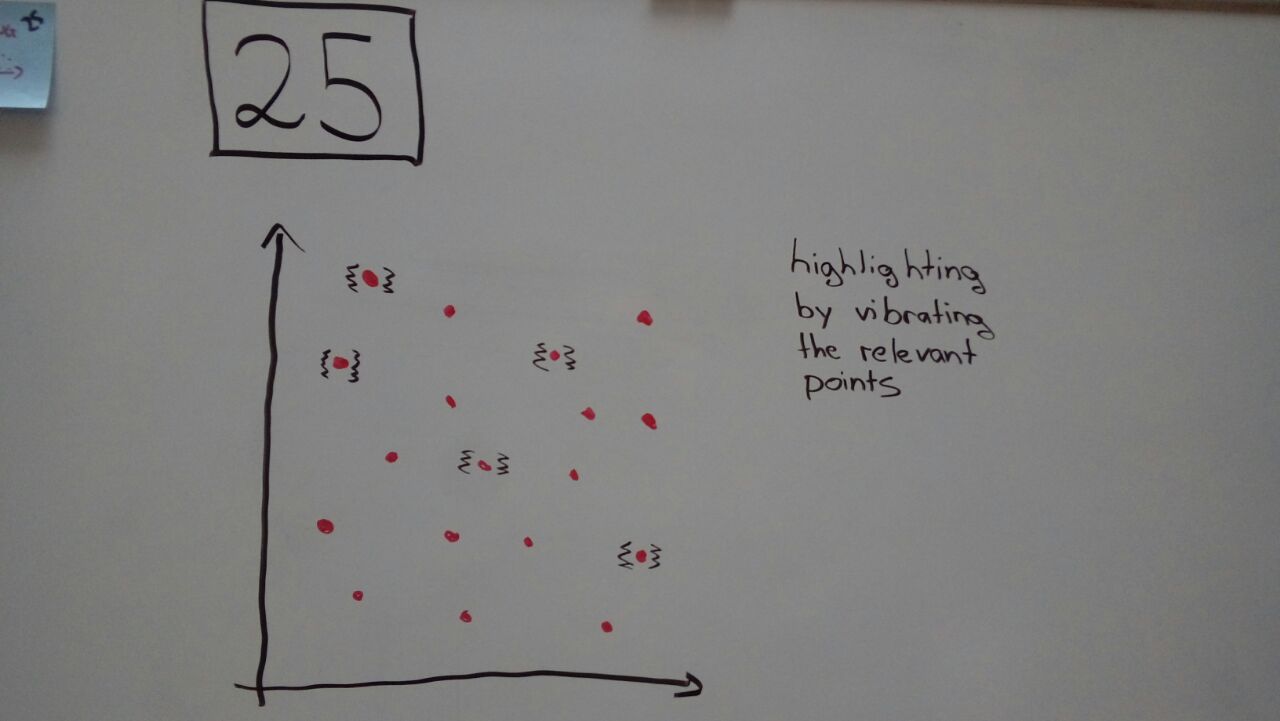 25
highlighting
by vibrating
the relevant
points